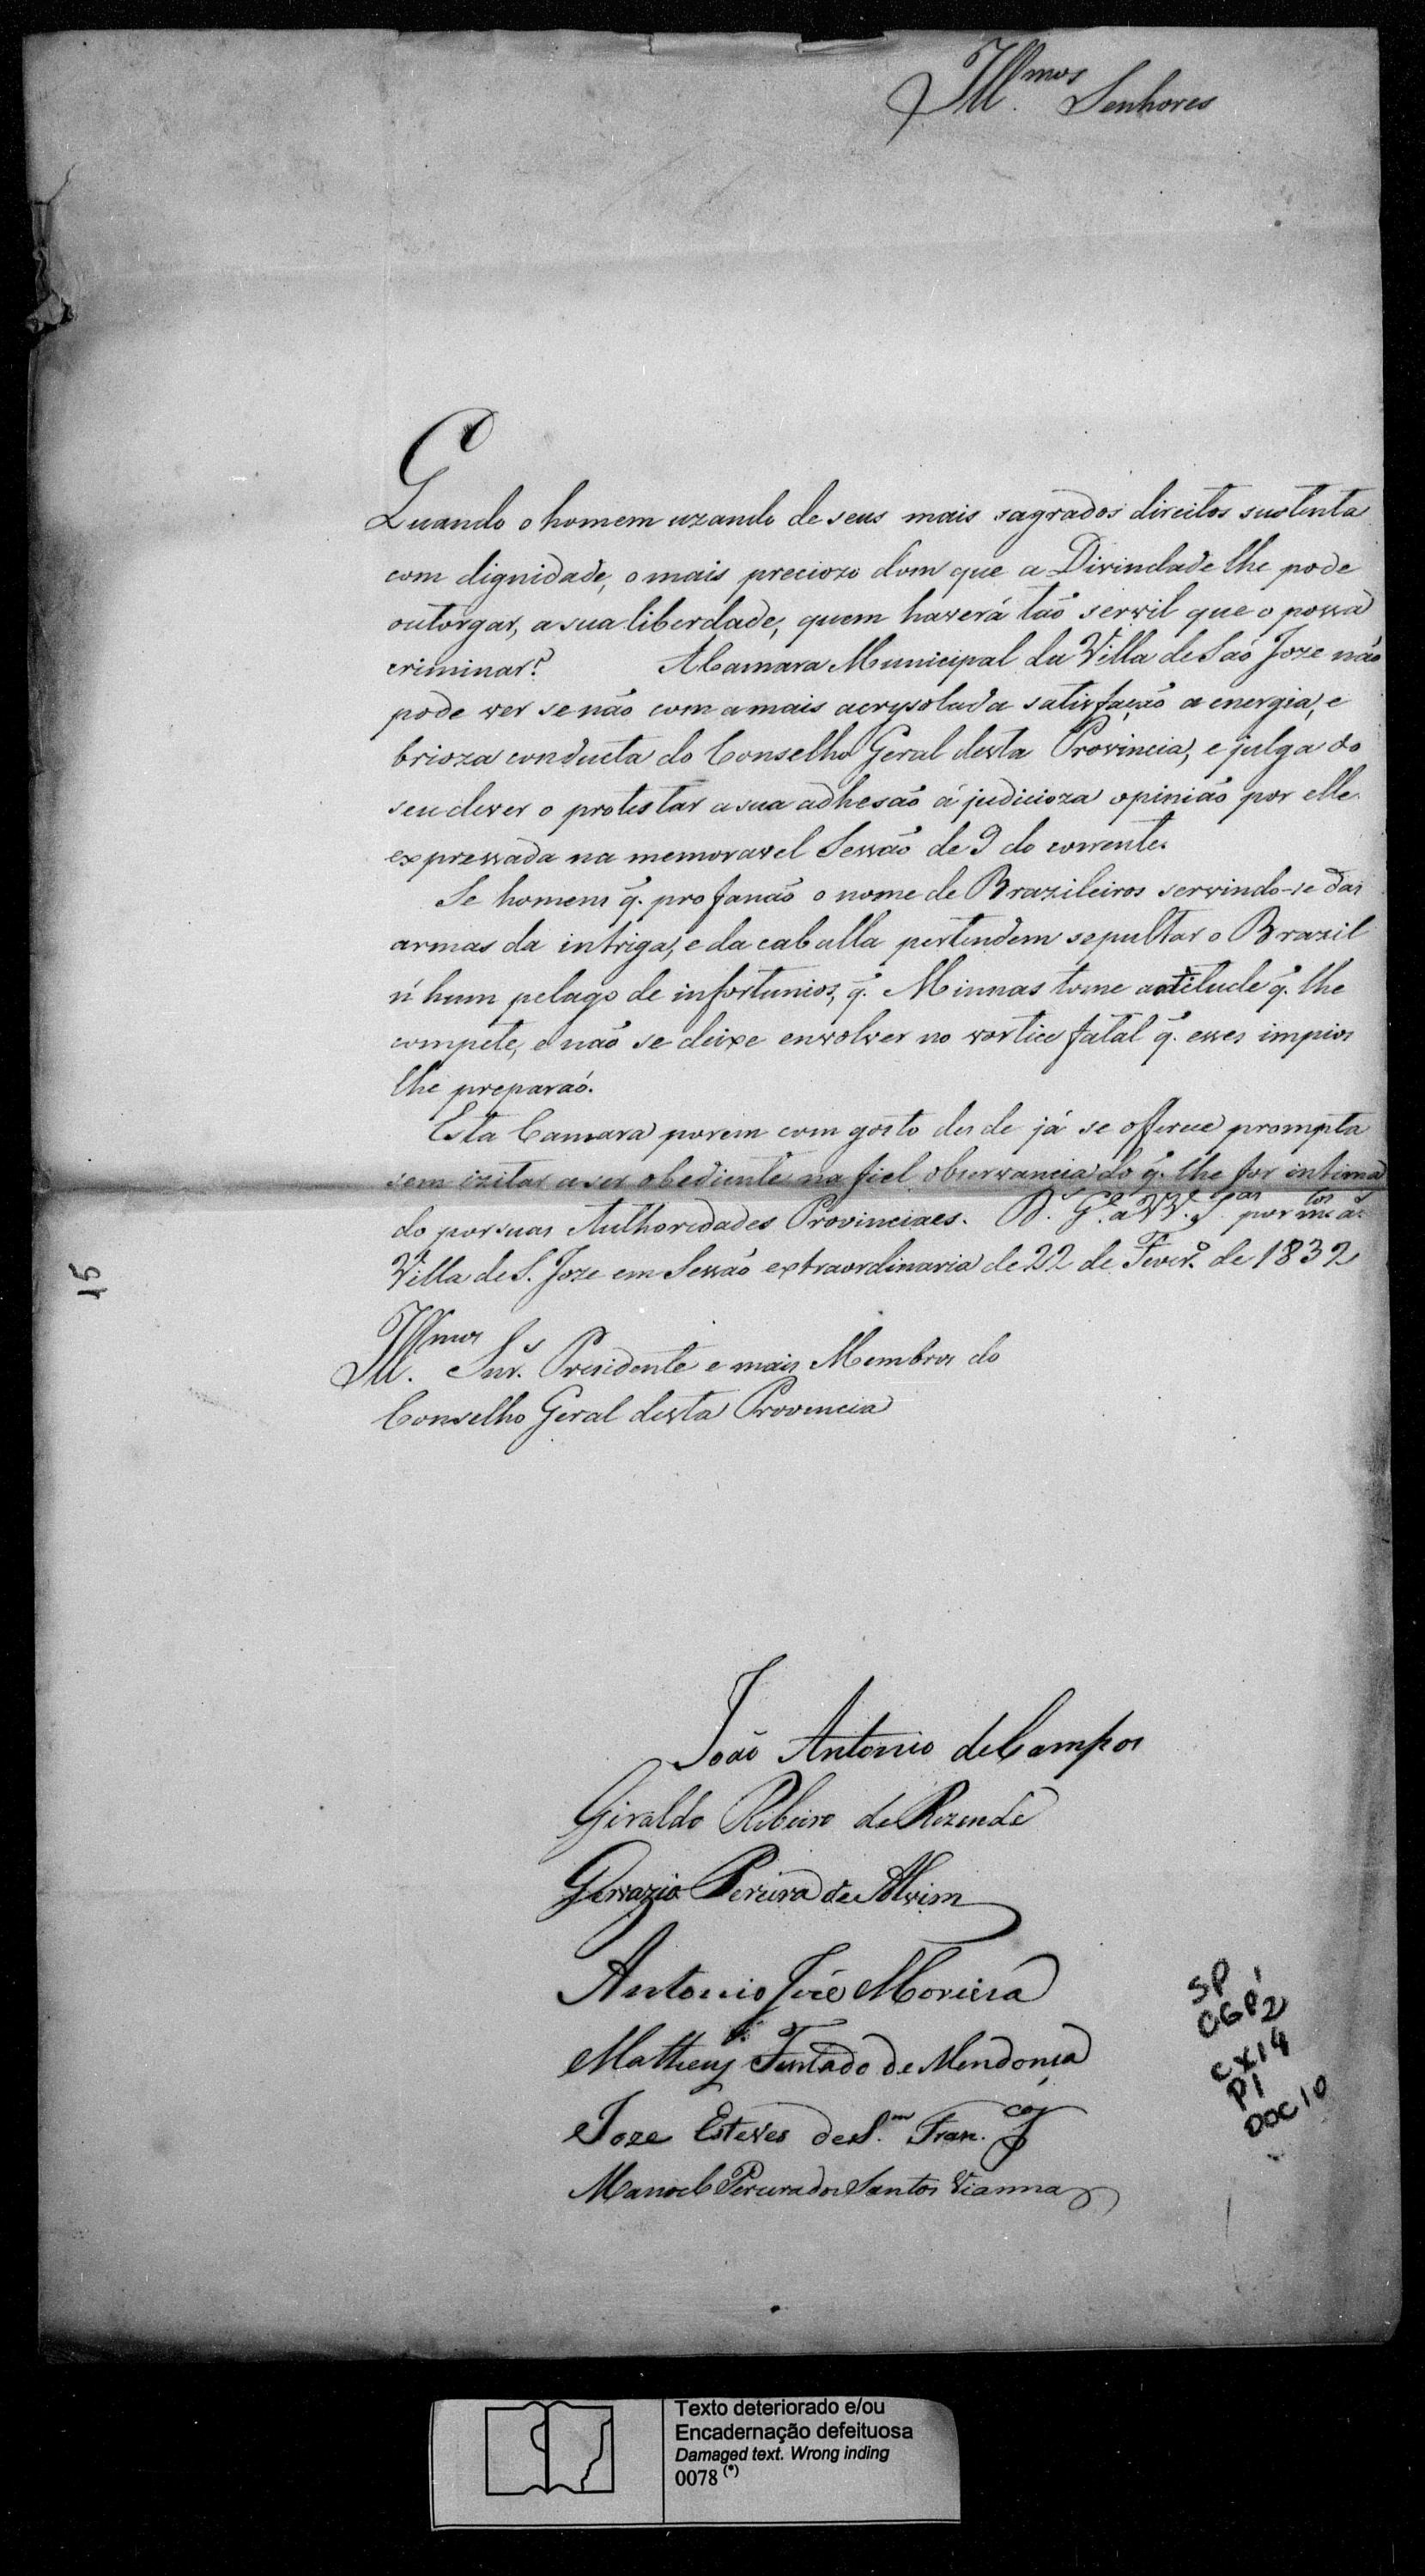 Ill.mos Senhores
Quando o homem uzando de seus mais sagrados direitos sustenta
com dignidade, o mais preciozo dom que a Divindade lhe pode
outorgar, a sua liberdade, quem haverá tão servil que o possa
criminar? A Camara Municipal da Villa de São Joze não
pode ver se não com a mais acrysolada satisfação a energia, e
brioza conducta do Conselho Geral desta Provincia, e julga do
seu dever o protestar a sua adhesão á judicioza opinião por elle
expressada na memoravel Sessão de 9 do corrente.
Se homens q. profanão o nome de Brazileiros servindo-se das
armas da intriga, e da caballa pertendem sepultar o Brazil
n'hum pelago de infortunios, q. Minnas tome a atitude q. lhe
compete, e não se deixe envolver no vortice fatal q. esses impios
lhe preparaó.
Esta Camara porem com gosto desde já se offerece prompta
sem izitar a ser obediente na fiel observancia do q. lhe for intima
do por suas Authoridades Provinciaes. D.s G.e a VV. S.as por m.tos a.s
Villa de S. Joze em Sessão extraordinaria de 22 de Fever.o de 1832
Ill.mos Snr.s Presidente e mais Membros do
Conselho Geral desta Provencia
15
João Antonio de Campos
Giraldo Ribeiro de Rezende
Gervazio Pereira de Alvim
Antonio José Moreira
Matheus Furtado de Mendonça
Joze Esteves de S.m Fran.co
Manoel Pereira dos Santos Vianna
SP
CGP2
CX14
P1
DOC10
Texto deteriorado e/ou
Encadernação defeituosa
Damaged text. Wrong inding
0078 (*)